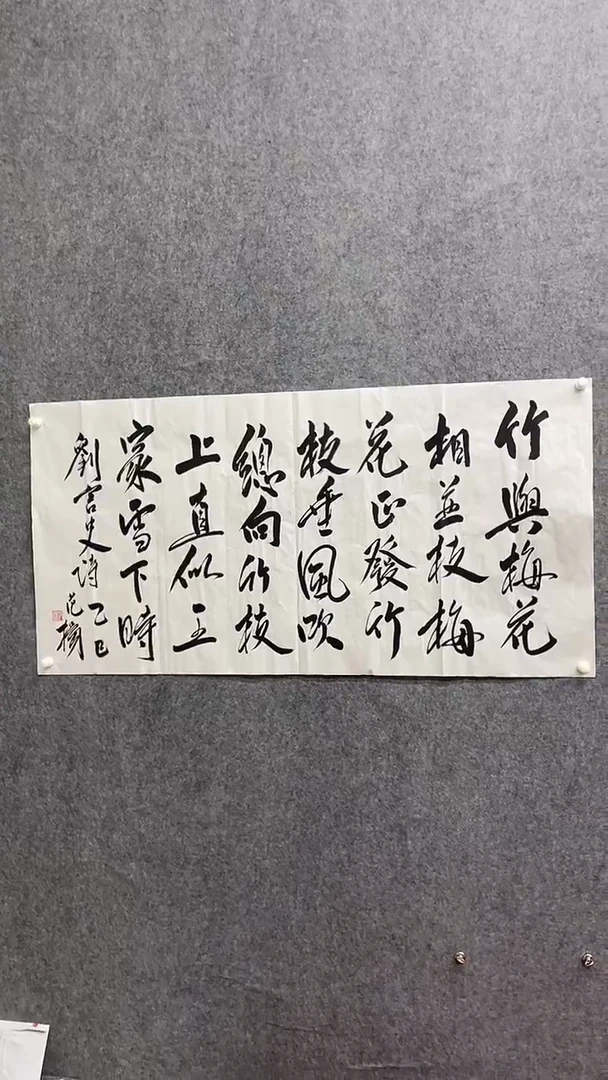 竹與梅花
相並枝梅
花正發竹
枝垂風吹
總向竹枝
上直似王
家雪下時
劉言史詩乙巳
范